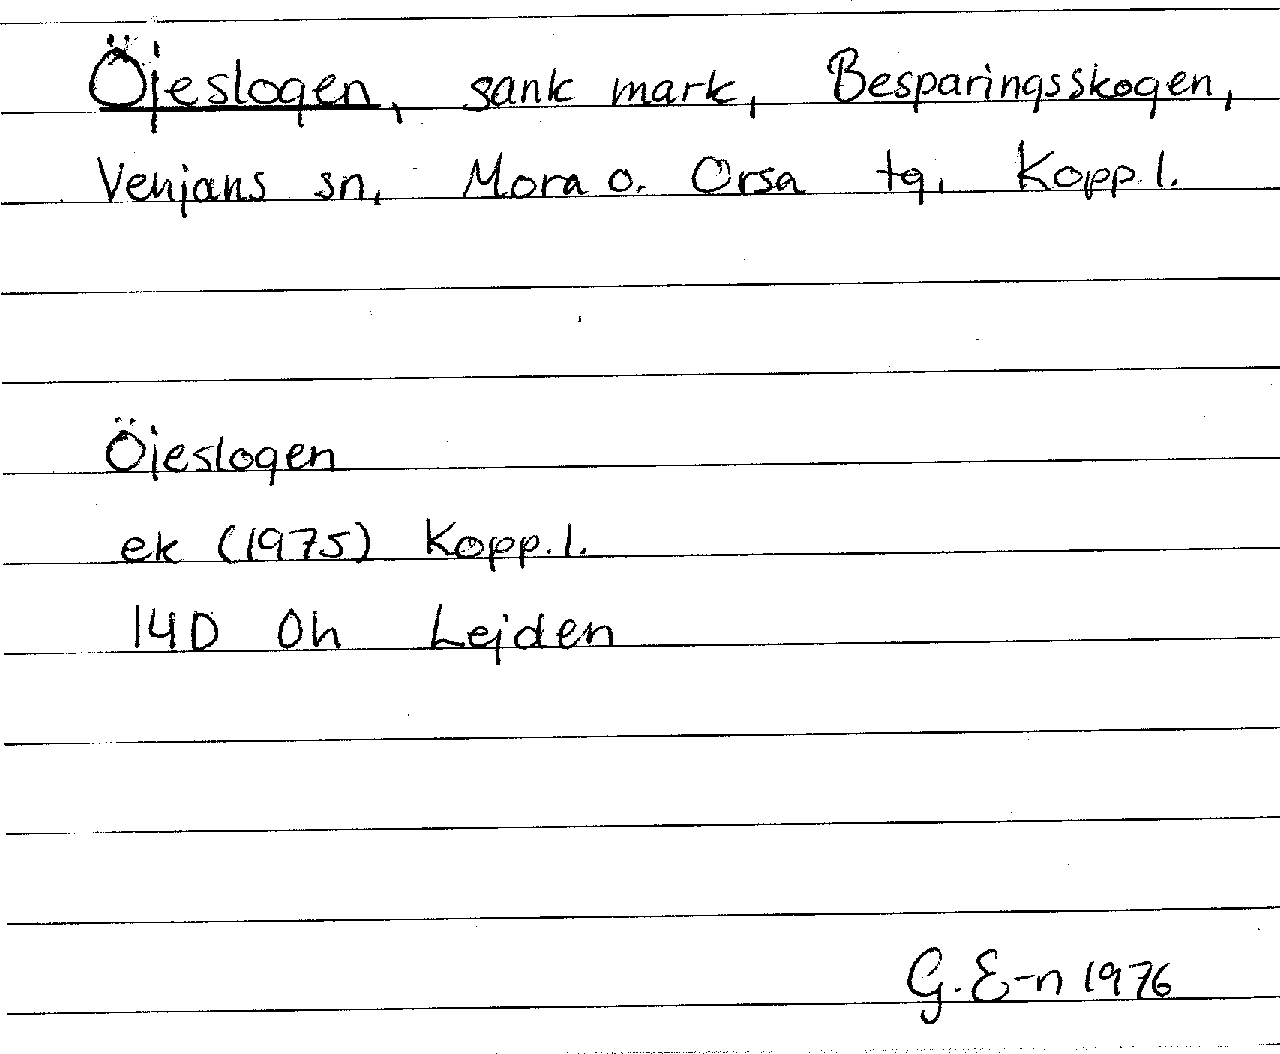 Öjeslogen, sank mark, Besparingsskogen,
Venjans sn, Mora o. Orsa tg, Kopp. l.
Öjeslogen
ek (1975) Kopp. l.
14D 0h Lejden
G. E-n 1976